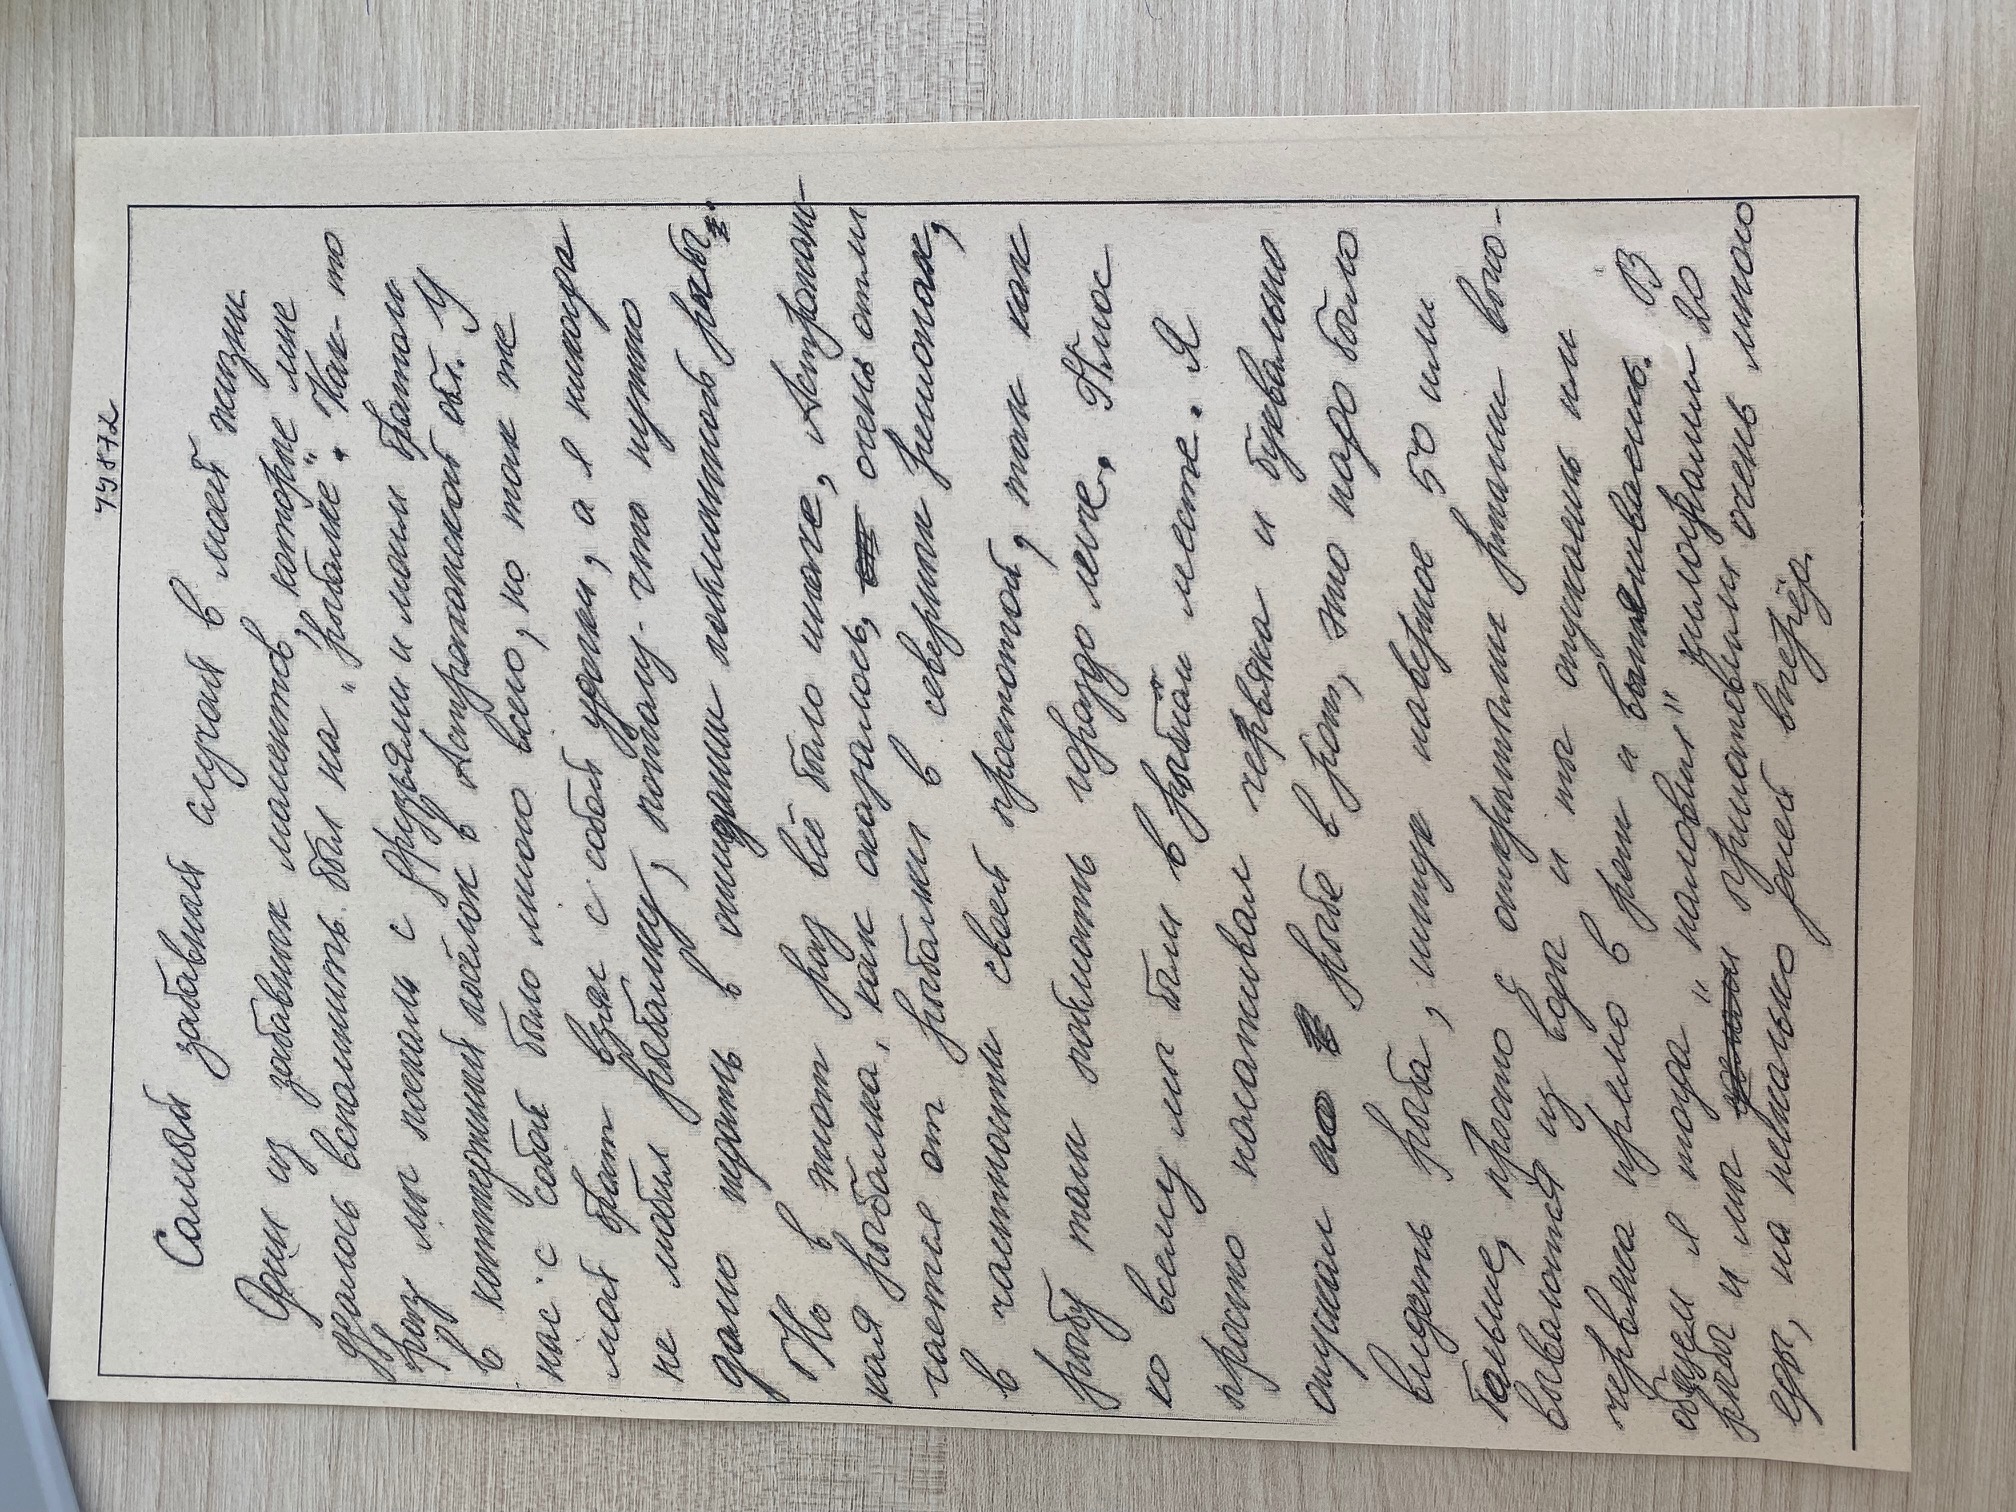 79872
Самый забавный случай в моей жизни.
Один из забавных моментов, которые мне
удалось вспомнить был на "рыбалке". Как-то
раз мы поехали с друзьями и моим братом
в коттеджный посёлок в Астраханской обл. У
нас с собой было много всего, но так же
мой брат взял с собой удочки, а я никогда
не любил рыбалку, потому-что нужно
долго ждать в ожидании пойманной рыбы.
Но в этот раз всё было иначе, Астрахан-
ская рыбалка, как оказалось, очень отли
чается от рыбалки в северных регионах,
в частности своей простотой, так как
рыбу там поймать гораздо легче. Плюс
ко всему мы были в рыбном месте. Я
просто насаживал червяка и буквально
опускал его рыбе в рот, это надо было
видеть рыба, щука наверное 50 или
больше, просто с открытыми ртами высо-
вываются из воды и ты опускаешь им
червяка прямо в рот и вытаскиваешь. В
общем я тогда "наловил" килограмм 20
рыбы и мы приготовили очень много
еды, на несколько дней вперёд.